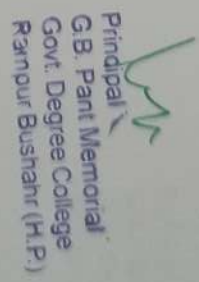 Principal
G.B. Pant Memorial
Govt. Degree College
Rampur Bushahr (H.P.)